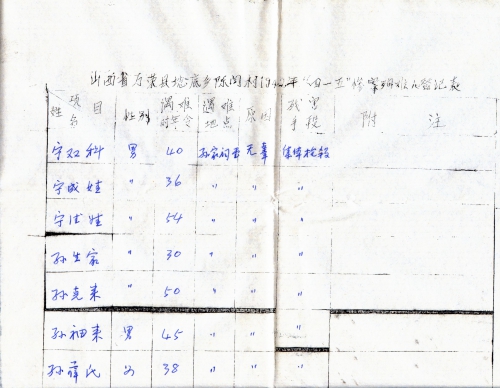 山西省万荣县 底乡陈阎村 年"四一五"惨案 难人登记表
项目 姓名 性别 遇难时年令 遇难地点 原因 残害手段 附注
宁双科 男 40 孙家祠 无辜 集体枪杀
宁成娃 " 36 " " "
宁法娃 " 54 " " "
孙生家 " 30 " " "
孙克来 " 50 " " "
孙祖来 男 45 " " "
孙薛氏 女 38 " " "